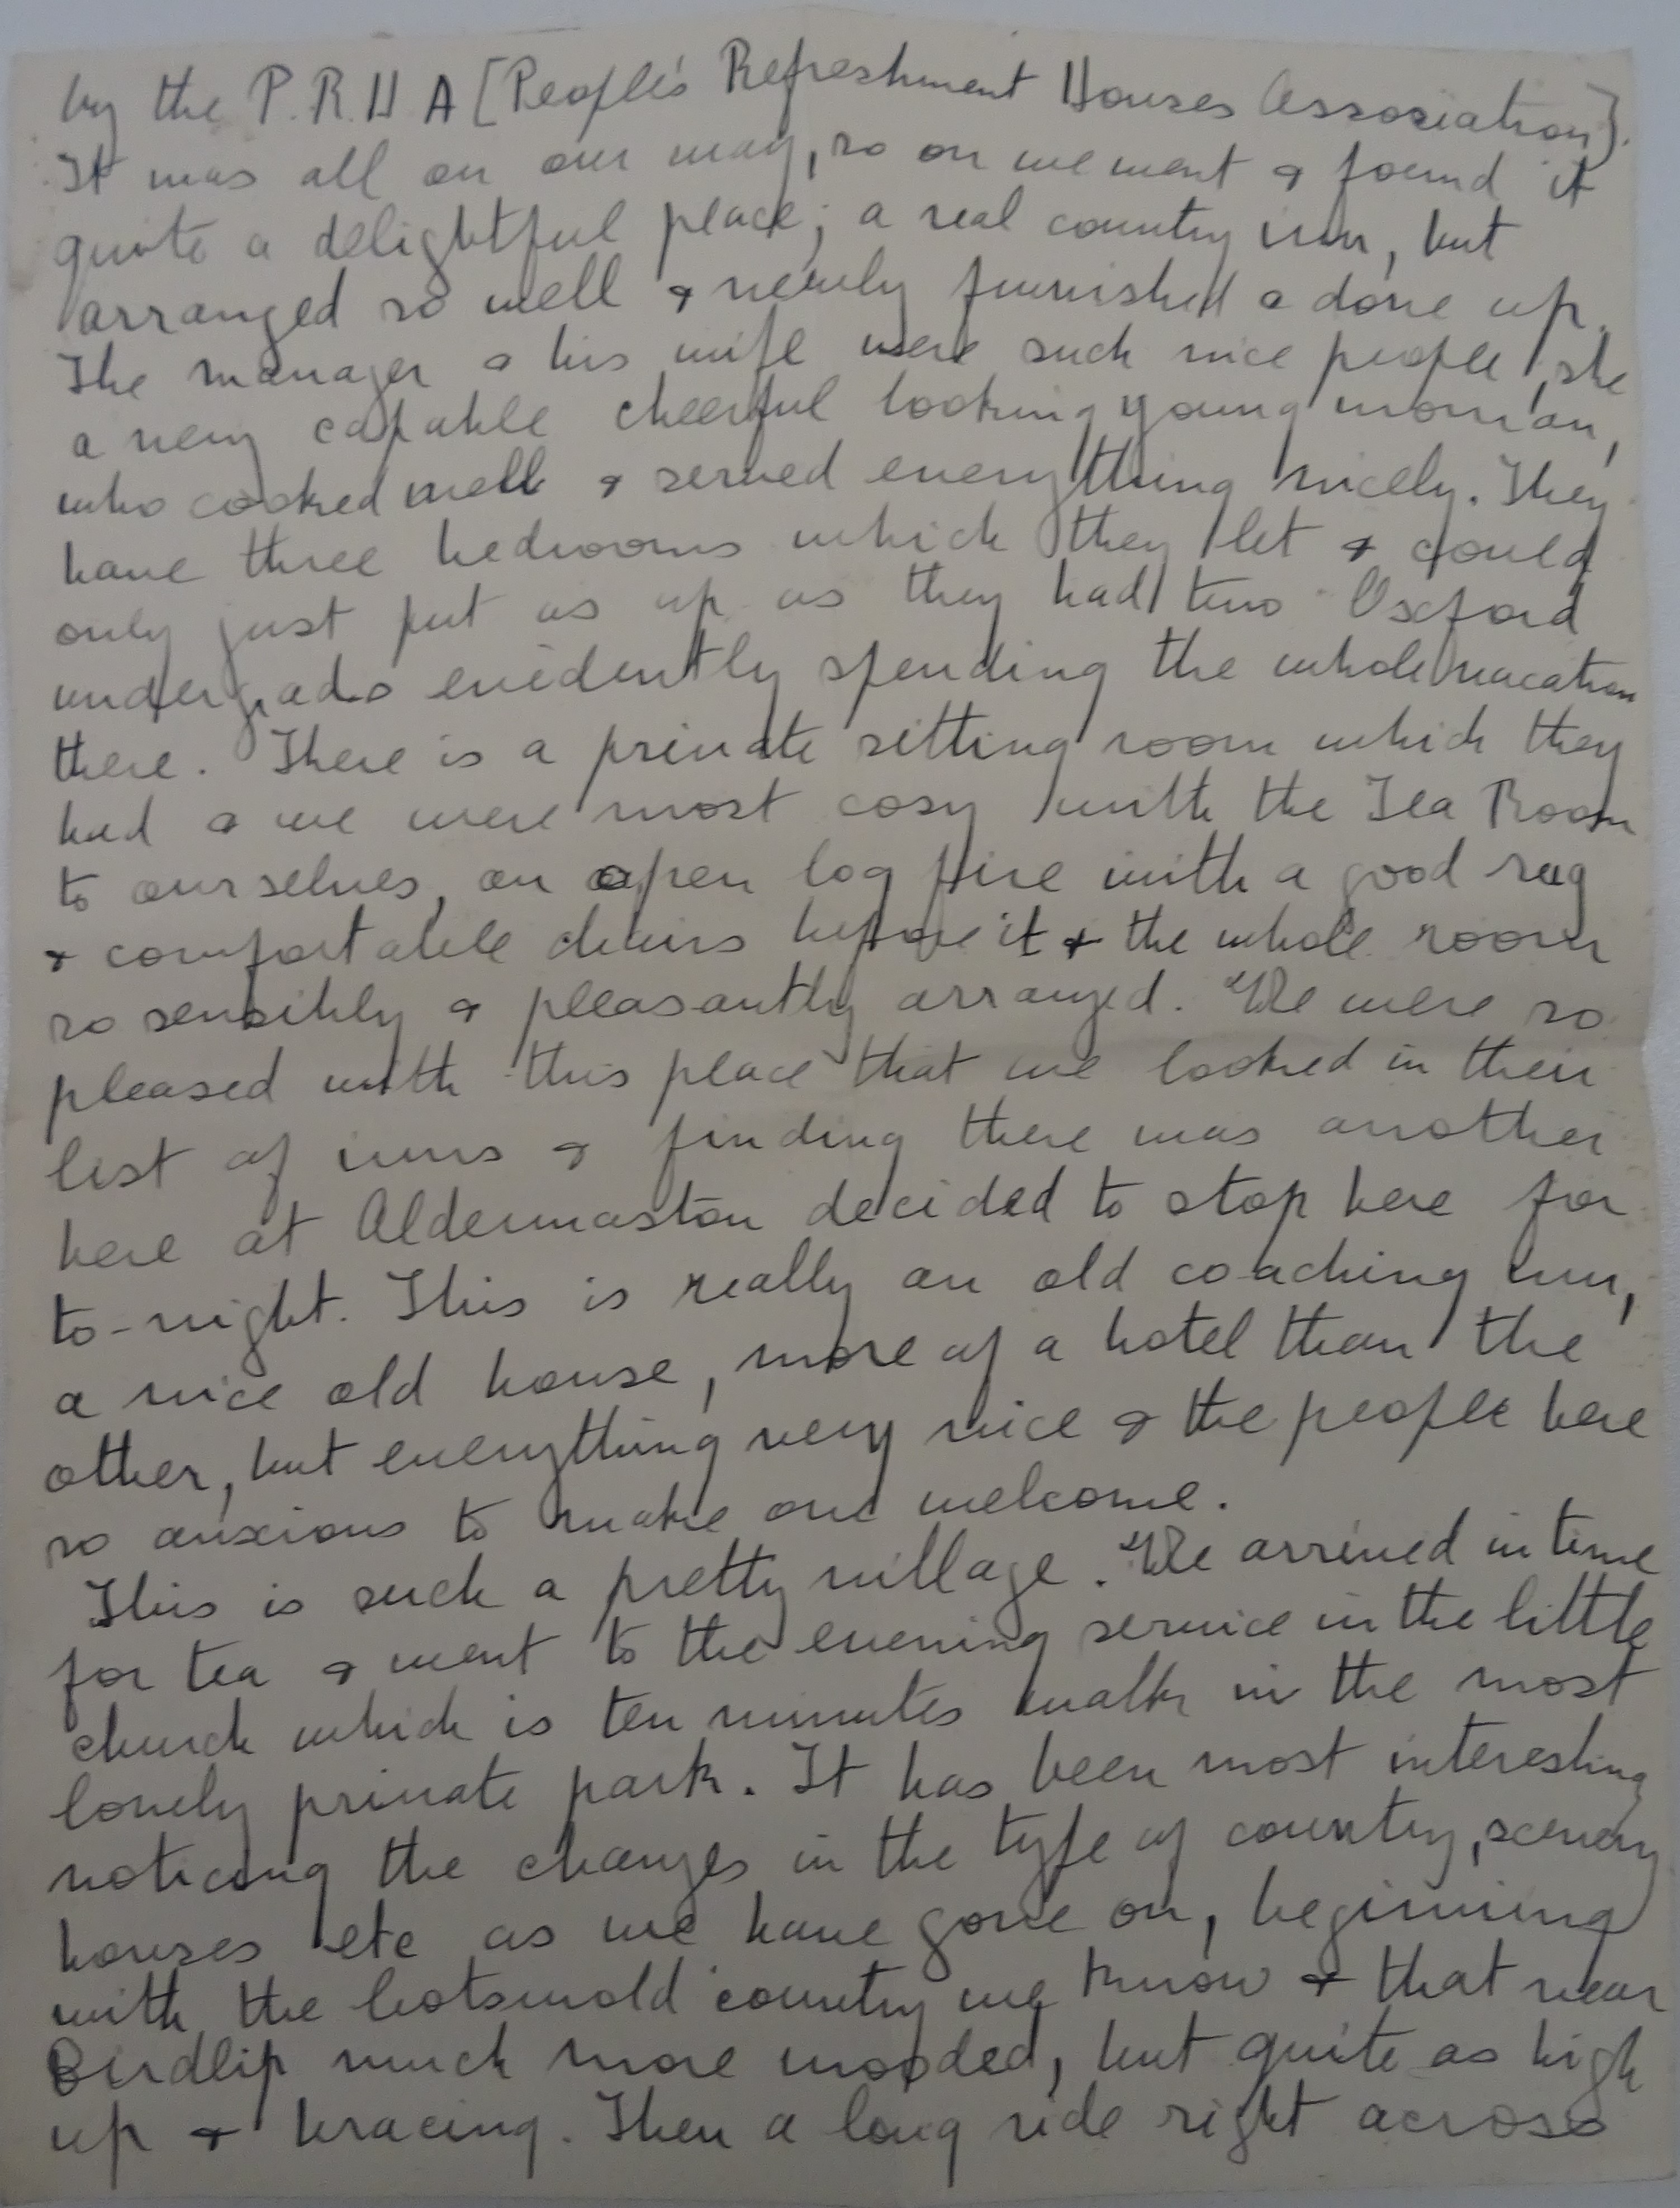 by the P.R.H A [People's Refreshment Houses Association].
It was all on our way, so on we went & found it
quite a delightful place; a real country inn, but
arranged so well & newly furnished & done up.
The manager & his wife were such nice people, she
a very capable cheerful looking young woman,
who cooked well & served everything nicely. They
have three bedrooms which they let & could
only just put us up as they had two Oxford
undergrads evidently spending the whole vacation
there. There is a private sitting room which they
had & we were most cosy with the Tea Room
to ourselves, an open log fire with a good rug
& comfortable chairs before it & the whole room
so sensibly & pleasantly arranged. We were so
pleased with this place that we looked in their
list of inns & finding there was another
here at Aldermaston decided to stop here for
to-night. This is really an old coaching inn,
a nice old house, more of a hotel than the
other, but everything very nice & the people here
so anxious to make one welcome.
This is such a pretty village. We arrived in time
for tea & went to the evening service in the little
church which is ten minutes walk in the most
lovely private park. It has been most interesting
noticing the changes in the type of country, scenery
houses etc as we have gone on, beginning
with the Cotswold country we know & that near
Birdlip much more wooded, but quite as high
up & bracing. Then a long ride right across